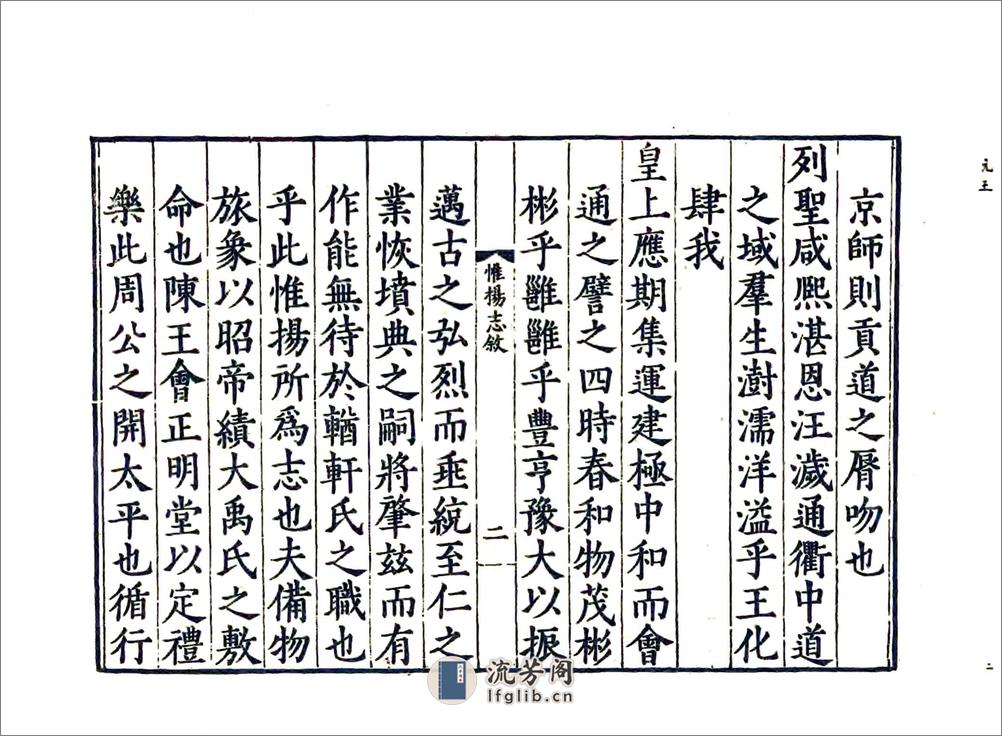 京師則貢道之脣吻也
列聖咸熙湛恩汪濊通衢中道
之域羣生澍濡洋溢乎王化
肆我
皇上應期集運建極中和而會
通之譬之四時春和物茂彬
彬乎雝雝乎豐亨豫大以振
惟揚志敘
二
邁古之弘烈而垂統至仁之
業恢墳典之嗣將肇兹而有
作能無待於輶軒氏之職也
乎此惟揚所爲志也夫備物
旅象以昭帝績大禹氏之敷
命也陳王會正明堂以定禮
樂此周公之開太平也循行
元王
二
流芳阁
lfglib.cn